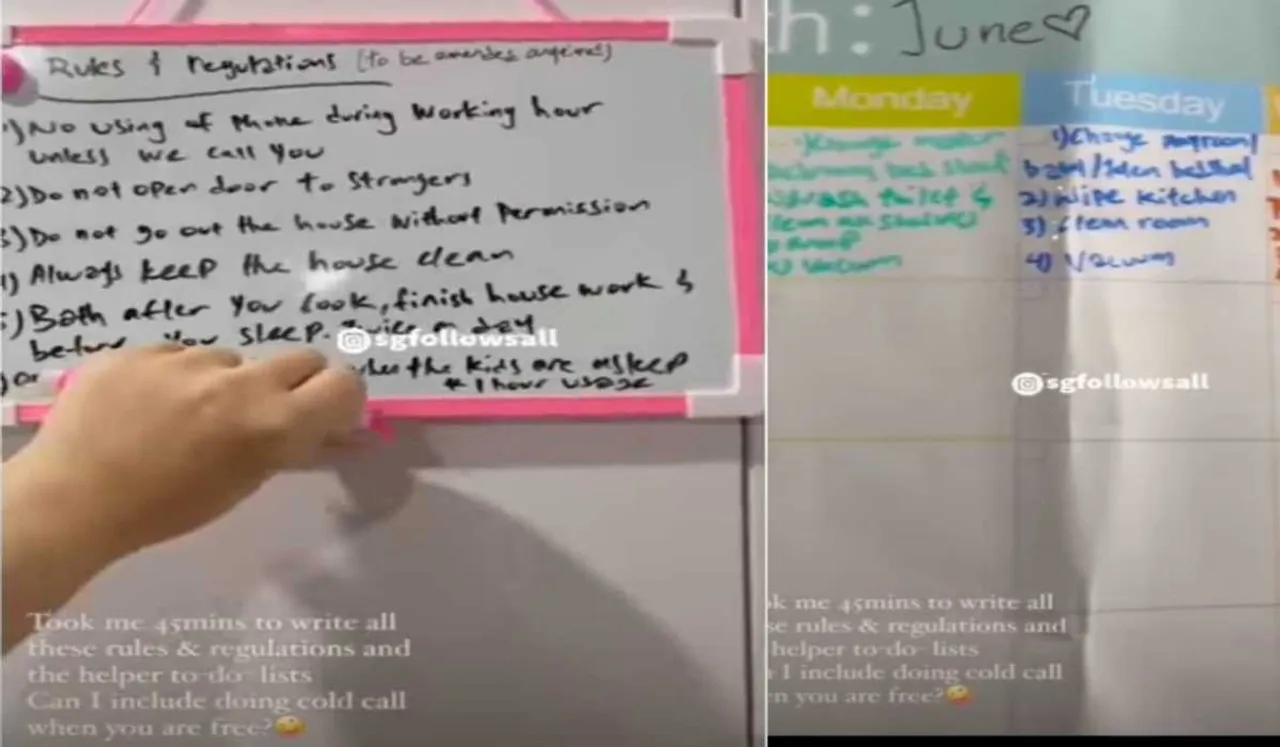 Rules & regulations (to be amended
1) No using of Phone during working hour
unless we call you
2) Do not open door to strangers
3) Do not go out the house without Permission
4) Always keep the house clean
5) Bath after you cook, finish house work &
before you sleep. twice a day
when the kids are asleep
* 1 hour usage
@sgfollowsall
Took me 45mins to write all
these rules & regulations and
the helper to-do- lists
Can I include doing cold call
when you are free?🤪
th: June♡
Monday
bed sheet
toilet &
Vacuum
Tuesday
1) Change
2) Wipe kitchen
3) Clean room
4) Vacuum
@sgfollowsall
k me 45mins to write all
se rules & regulations and
helper to-do- lists
I include doing cold call
n you are free?🤪